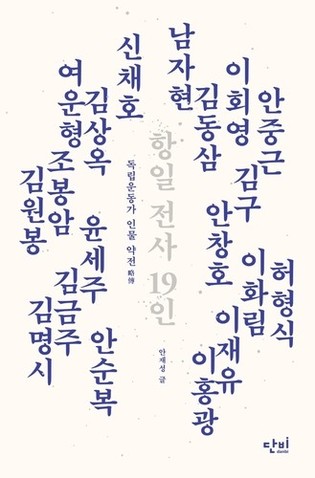 안중근
이회영
남자현
김동삼
신채호
여운형
김상옥
김구
안창호
조봉암
김원봉
윤세주
이화림
허형식
이재유
이홍광
김금주
김명시
안순복
항일 전사 19인
독립운동가 인물 약전 略傳
안재성 글
단비
danbi